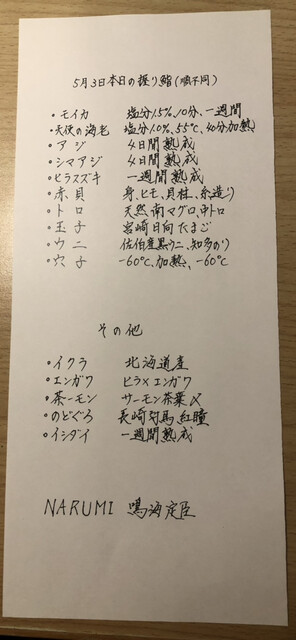 5月3日本日の握り鮨(順不同)
・モイカ 塩分1.5%、10分、一週間
・天使の海老 塩分1.0%、55℃、40分加熱
・アジ 4日間熟成
・シマアジ 4日間熟成
・ヒラスズキ 一週間熟成
・赤貝 身、ヒモ、貝柱、糸造り
・トロ 天然南マグロ、中トロ
・玉子 宮崎日向たまご
・ウニ 佐伯産黒ウニ、知多のり
・穴子 -60℃、加熱、-60℃
その他
・イクラ 北海道産
・エンガワ ヒラメエンガワ
・茶ーモン サーモン茶葉〆
・のどぐろ 長崎対馬紅瞳
・イシダイ 一週間熟成
NARUMI 鳴海定臣